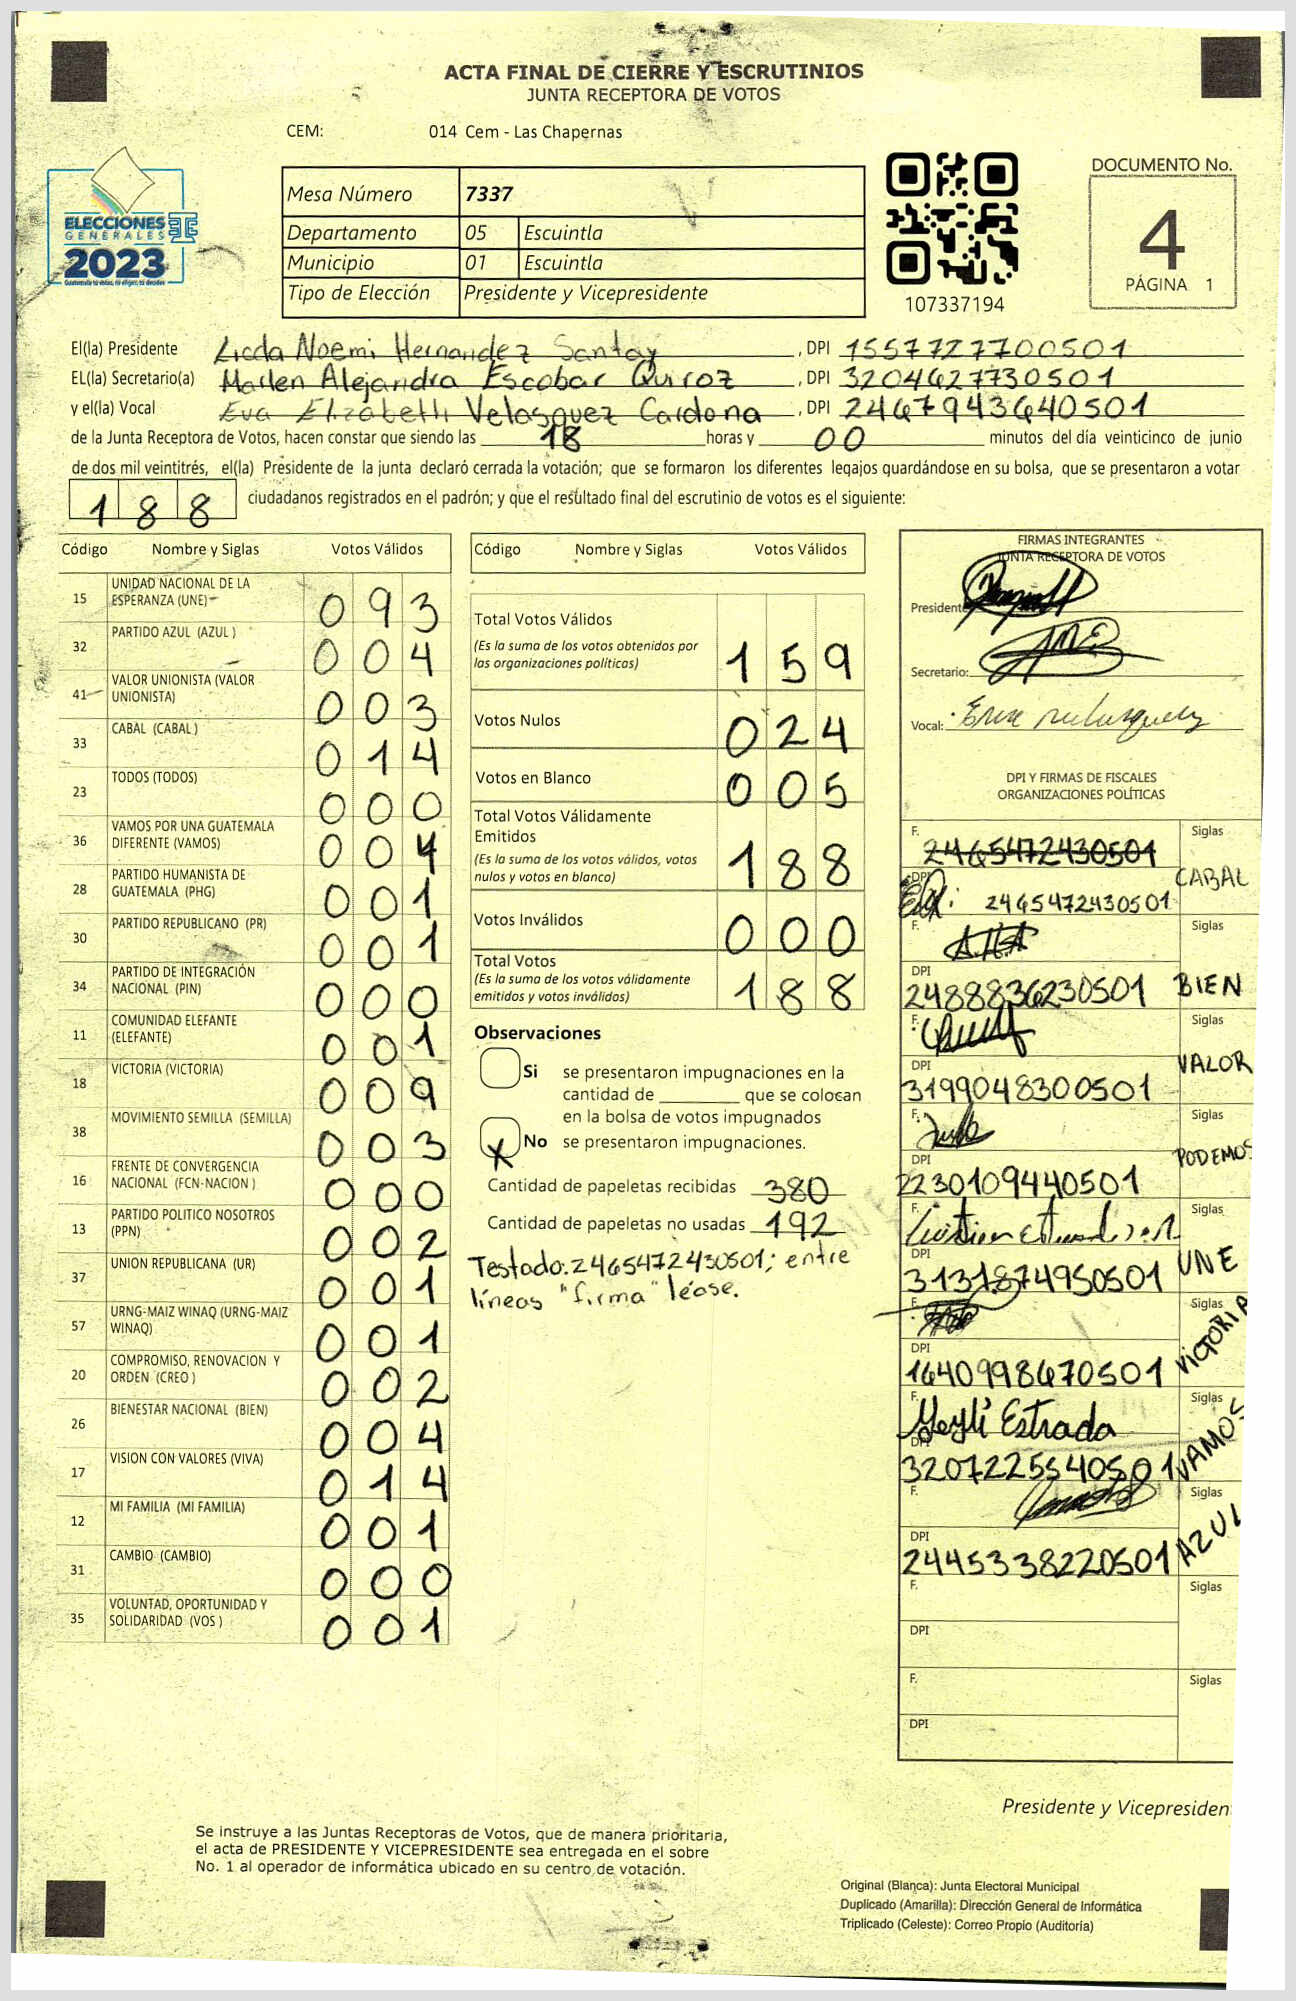 ACTA FINAL DE CIERRE Y ESCRUTINIOS
JUNTA RECEPTORA DE VOTOS
CEM: 014 Cem - Las Chapernas
ELECCIONES
GENERALES
2023
Mesa Número 7337
Departamento 05 Escuintla
Municipio 01 Escuintla
Tipo de Elección Presidente y Vicepresidente
107337194
DOCUMENTO No.
4
PÁGINA 1
El(la) Presidente Licda Noemi Hernandez Santay, DPI 1557727700501
EL(la) Secretario(a) Marlen Alejandra Escobar Quiroz, DPI 3204627730501
y el(la) Vocal Eva Elizabeth Velasquez Cardona, DPI 2467943640501
de la Junta Receptora de Votos, hacen constar que siendo las 18 horas y 00 minutos del día veinticinco de junio
de dos mil veintitrés, el(la) Presidente de la junta declaró cerrada la votación; que se formaron los diferentes legajos guardándose en su bolsa, que se presentaron a votar
188 ciudadanos registrados en el padrón; y que el resultado final del escrutinio de votos es el siguiente:
Código Nombre y Siglas Votos Válidos
15 UNIDAD NACIONAL DE LA ESPERANZA (UNE) 093
32 PARTIDO AZUL (AZUL ) 004
41 VALOR UNIONISTA (VALOR UNIONISTA) 003
33 CABAL (CABAL ) 014
23 TODOS (TODOS) 000
36 VAMOS POR UNA GUATEMALA DIFERENTE (VAMOS) 004
28 PARTIDO HUMANISTA DE GUATEMALA (PHG) 001
30 PARTIDO REPUBLICANO (PR) 001
34 PARTIDO DE INTEGRACIÓN NACIONAL (PIN) 000
11 COMUNIDAD ELEFANTE (ELEFANTE) 001
18 VICTORIA (VICTORIA) 009
38 MOVIMIENTO SEMILLA (SEMILLA) 003
16 FRENTE DE CONVERGENCIA NACIONAL (FCN-NACION ) 000
13 PARTIDO POLITICO NOSOTROS (PPN) 002
37 UNION REPUBLICANA (UR) 001
57 URNG-MAIZ WINAQ (URNG-MAIZ WINAQ) 001
20 COMPROMISO, RENOVACION Y ORDEN (CREO ) 002
26 BIENESTAR NACIONAL (BIEN) 004
17 VISION CON VALORES (VIVA) 014
12 MI FAMILIA (MI FAMILIA) 001
31 CAMBIO (CAMBIO) 000
35 VOLUNTAD, OPORTUNIDAD Y SOLIDARIDAD (VOS ) 001
Código Nombre y Siglas Votos Válidos
Total Votos Válidos 159
(Es la suma de los votos obtenidos por
las organizaciones políticas)
Votos Nulos 024
Votos en Blanco 005
Total Votos Válidamente
Emitidos 188
(Es la suma de los votos válidos, votos
nulos y votos en blanco)
Votos Inválidos 000
Total Votos 188
(Es la suma de los votos válidamente
emitidos y votos inválidos)
Observaciones
Si se presentaron impugnaciones en la
cantidad de ________ que se colocan
en la bolsa de votos impugnados
X No se presentaron impugnaciones.
Cantidad de papeletas recibidas 380
Cantidad de papeletas no usadas 192
Testado: 2465472430501; entre
líneas "firma" léase.
FIRMAS INTEGRANTES
JUNTA RECEPTORA DE VOTOS
Presidente
Secretario:
Vocal:
DPI Y FIRMAS DE FISCALES
ORGANIZACIONES POLÍTICAS
F. 2465472430501 Siglas
DPI 2465472430501 CABAL
F. Siglas
DPI 2488836230501 BIEN
F. Siglas
DPI 3199048300501 VALOR
F. Siglas
DPI 2230109440501 PODEMOS
F. Siglas
DPI 3131874950501 UNE
F. Siglas
DPI 1640998670501 VICTORIA
F. Yeyli Estrada Siglas
DPI 3207225540501 VAMOS
F. Siglas
DPI 2445338220501 AZUL
F. Siglas
DPI
F. Siglas
DPI
Presidente y Vicepresiden
Se instruye a las Juntas Receptoras de Votos, que de manera prioritaria,
el acta de PRESIDENTE Y VICEPRESIDENTE sea entregada en el sobre
No. 1 al operador de informática ubicado en su centro de votación.
Original (Blanca): Junta Electoral Municipal
Duplicado (Amarilla): Dirección General de Informática
Triplicado (Celeste): Correo Propio (Auditoría)